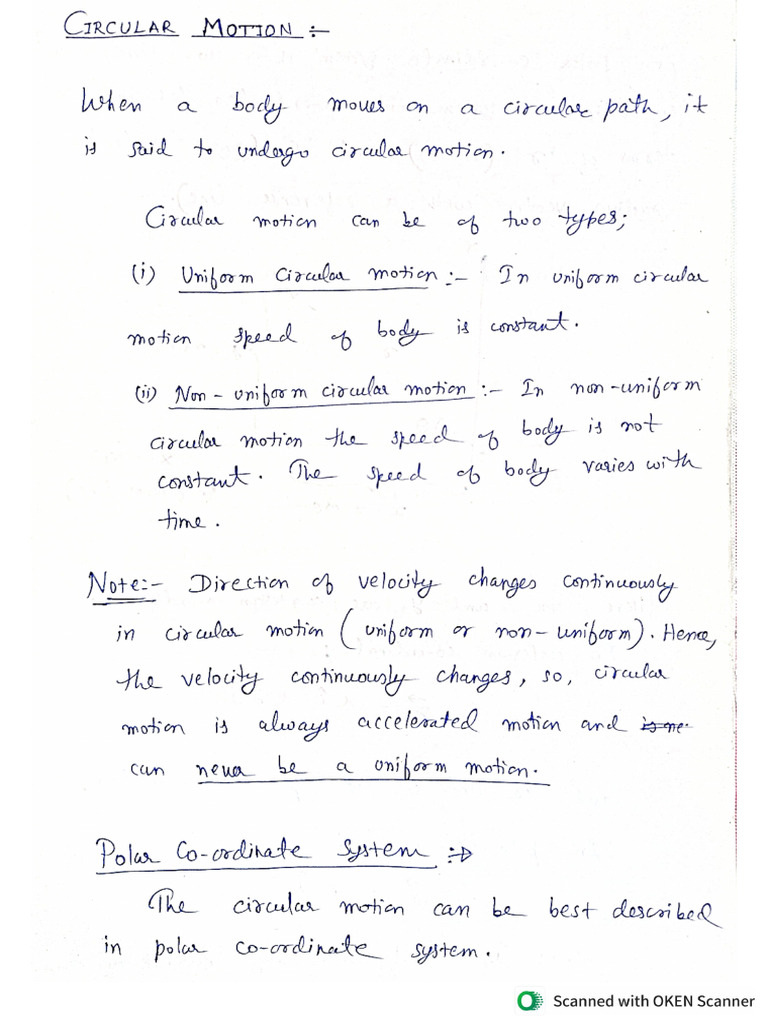 CIRCULAR MOTION :-
When a body moves on a circular path, it
is said to undergo circular motion.
Circular motion can be of two types;
(i) Uniform Circular motion :- In uniform circular
motion speed of body is constant.
(ii) Non-uniform circular motion :- In non-uniform
circular motion the speed of body is not
constant. The speed of body varies with
time.
Note:- Direction of velocity changes continuously
in circular motion (uniform or non-uniform). Hence,
the velocity continuously changes, so, circular
motion is always accelerated motion and is ne
can never be a uniform motion.
Polar Co-ordinate System :->
The circular motion can be best described
in polar co-ordinate system.
Scanned with OKEN Scanner